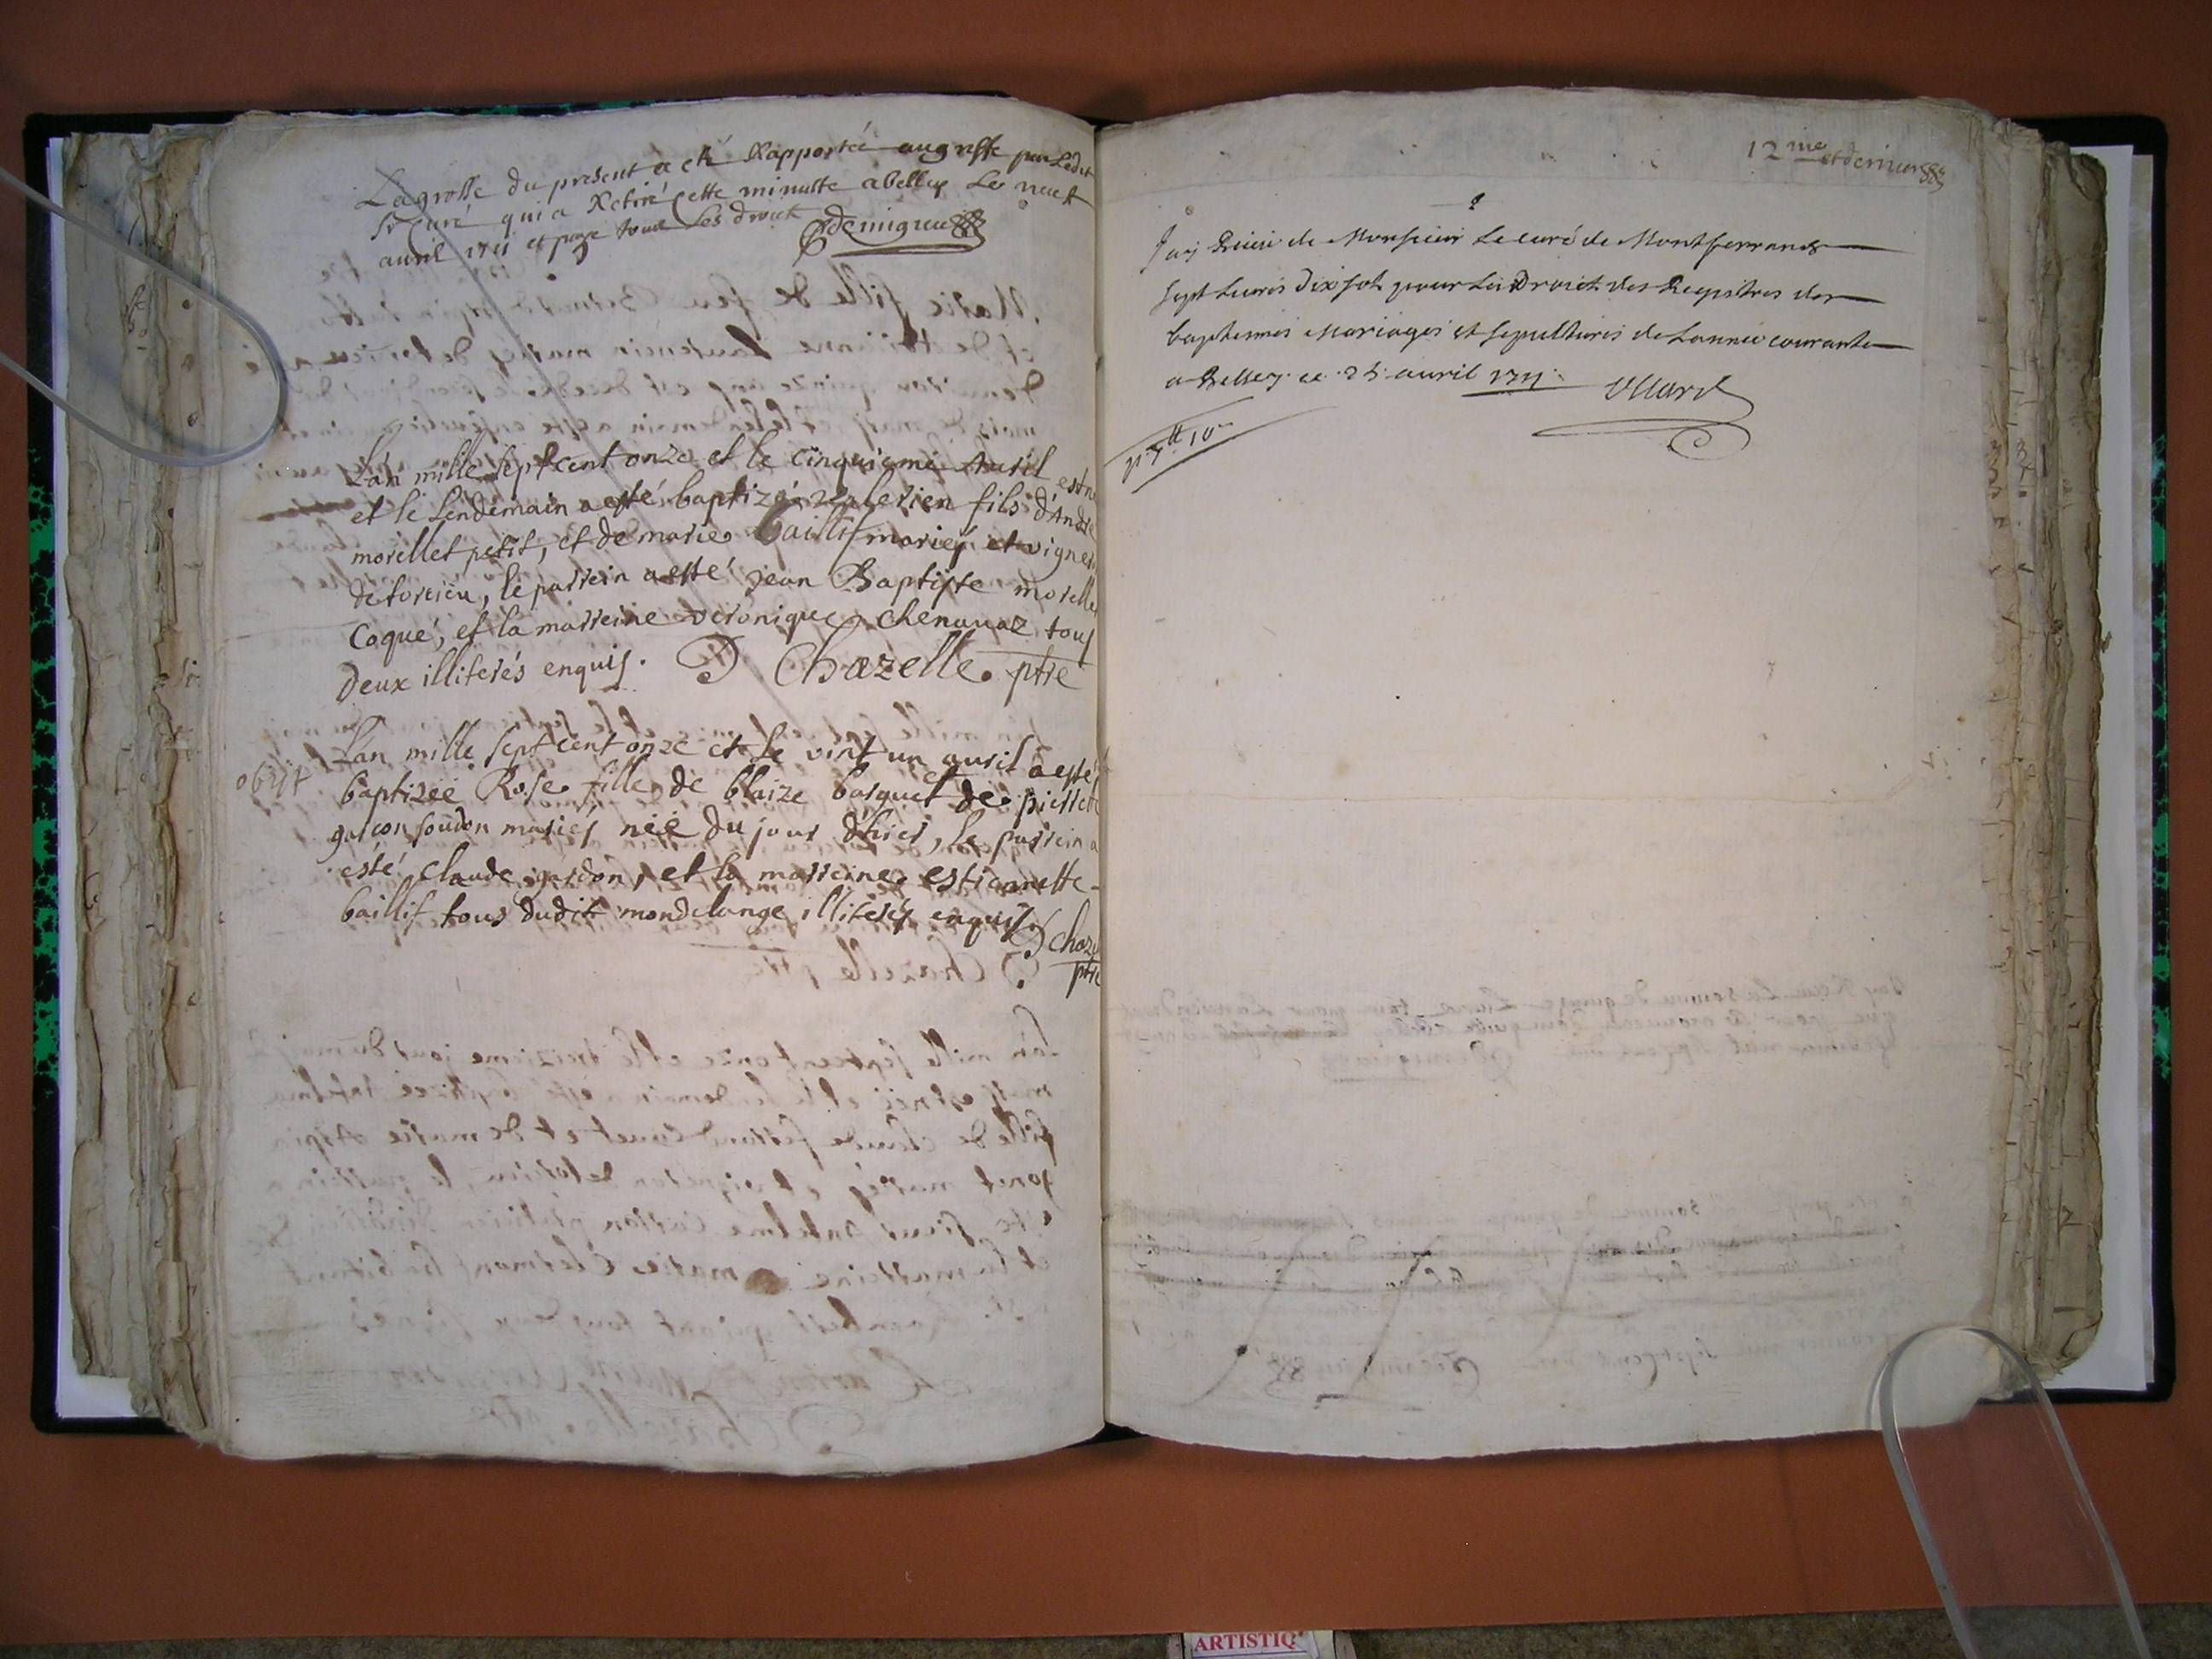 La grosse du present a eté Rapportée au greffe par Ledit
Sr Curé qui a Retiré Cette minutte a belley Le neuf
auril 1711 et paye tous les droict Demigieu
L'an mille sept cent onze et le cinquieme Auril est né
et le lendemain a esté baptizé valerien fils d'Andre
morellet petit, et de marie baillif mariés et vignerons
de torcieu, le parrein a esté jean Baptiste morellet
coque, et la marreine veronique chenauaz tous
deux illiterés enquis. D Chazelle ptre
obijt
L'an mille sept cent onze et le vint un auril a esté
baptizée Rose fille de blaize barquet de pierrette
garcon soudon mariés née du jour d'hier, le parrein a
esté claude gardon, et la marreine estiennette
baillif tous dudit mondelange illiterés enquis. D chaze
ptre
12me et dernier
J'ay Receu de Monsieur Le curé de Montferrand
sept Liures dix sols pour Les Droicts des Registres des
baptesmes Mariages et sepultures de L'année courante
a Belley ce 25 auril 1711
p. 7lt 10s
ARTISTIQ